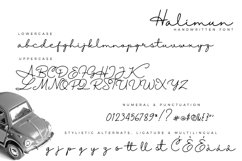 Halimun
HANDWRITTEN FONT
LOWERCASE
abcdefghijklmnopqrstuvwxyz
UPPERCASE
ABCDEFGHIJK
LMNOPQRSTUVWXYZ
NUMERAL & PUNCTUATION
0123456789!?
STYLISTIC ALTERNATE, LIGATURE & MULTILINGUAL